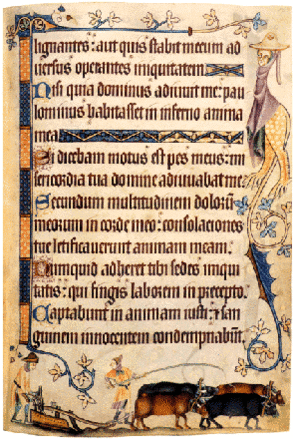 lignantes : aut quis stabit mecum ad
versus operantes iniquitatem
Nisi quia dominus adiuvit me : pau
lominus habitasset in inferno anima
mea
Si dicebam motus est pes meus : mi
sericordia tua domine adiuvabat me.
Secundum multitudinem dolorum
meorum in corde meo : consolaciones
tue letificaverunt animam meam.
Numquid adheret tibi sedes iniqui
tatis : qui fingis laborem in precepto.
Captabunt in animam iusti : & san
guinem innocentem condempnabunt.